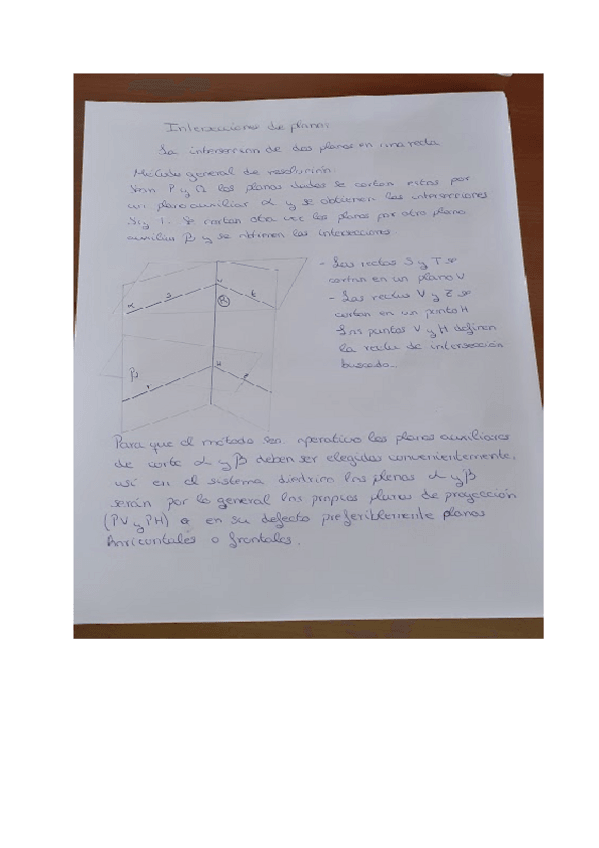 Intersecciones de planos
La interseccion de dos planos en una recta
Método general de resolución
Sean P y Q los planos dados se cortan estos por
un plano auxiliar α y se obtienen las intersecciones
S y T. Se cortan otra vez los planos por otro plano
auxiliar β y se obtienen las intersecciones.
- Las rectas S y T se
cortan en un plano V
- Las rectas V y Z se
cortan en un punto H
Los puntos V y H definen
la recta de intersección
buscado.
α s V t
R
β r H
Para que el método sea operativo los planos auxiliares
de corte α y β deben ser elegidos convenientemente,
así en el sistema diedrico los planos α y β
serán por lo general los propios planos de proyección
(PV y PH) o en su defecto preferiblemente planos
horizontales o frontales.